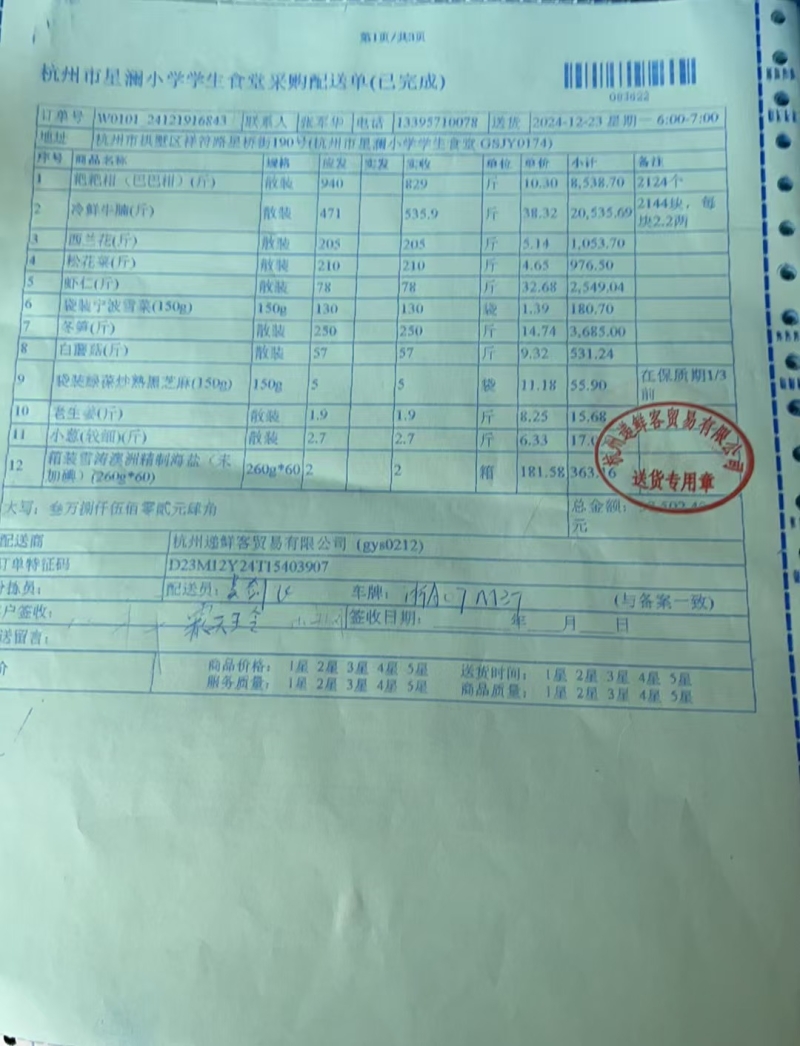 第1页/共3页
杭州市星澜小学学生食堂采购配送单(已完成)
083622
订单号 W0101_24121916843 联系人 张军华 电话 13395710078 送货 2024-12-23 星期一 6:00-7:00
地址 杭州市拱墅区祥符路星桥街190号(杭州市星澜小学学生食堂 GSJY0174)
序号 商品名称 规格 应发 实发 实收 单位 单价 小计 备注
1 粑粑柑（巴巴柑）(斤) 散装 940 829 斤 10.30 8,538.70 2124个
2 冷鲜牛腩(斤) 散装 471 535.9 斤 38.32 20,535.69 2144块，每块2.2两
3 西兰花(斤) 散装 205 205 斤 5.14 1,053.70
4 松花菜(斤) 散装 210 210 斤 4.65 976.50
5 虾仁(斤) 散装 78 78 斤 32.68 2,549.04
6 袋装宁波雪菜(150g) 150g 130 130 袋 1.39 180.70
7 冬笋(斤) 散装 250 250 斤 14.74 3,685.00
8 白蘑菇(斤) 散装 57 57 斤 9.32 531.24
9 袋装绿葆炒熟黑芝麻(150g) 150g 5 5 袋 11.18 55.90 在保质期1/3前
10 老生姜(斤) 散装 1.9 1.9 斤 8.25 15.68
11 小葱(较细)(斤) 散装 2.7 2.7 斤 6.33
12 箱装雪涛澳洲精制海盐（未加碘）(260g*60) 260g*60 2 2 箱 181.58 363.16
大写：叁万捌仟伍佰零贰元肆角 总金额： 元
杭州递鲜客贸易有限公司
送货专用章
配送商 杭州递鲜客贸易有限公司 (gys0212)
订单特征码 D23M12Y24T15403907
分拣员： 配送员： 车牌： (与备案一致)
客户签收： 签收日期： 年 月 日
送留言：
价 商品价格： 1星 2星 3星 4星 5星 送货时间： 1星 2星 3星 4星 5星
服务质量： 1星 2星 3星 4星 5星 商品质量： 1星 2星 3星 4星 5星